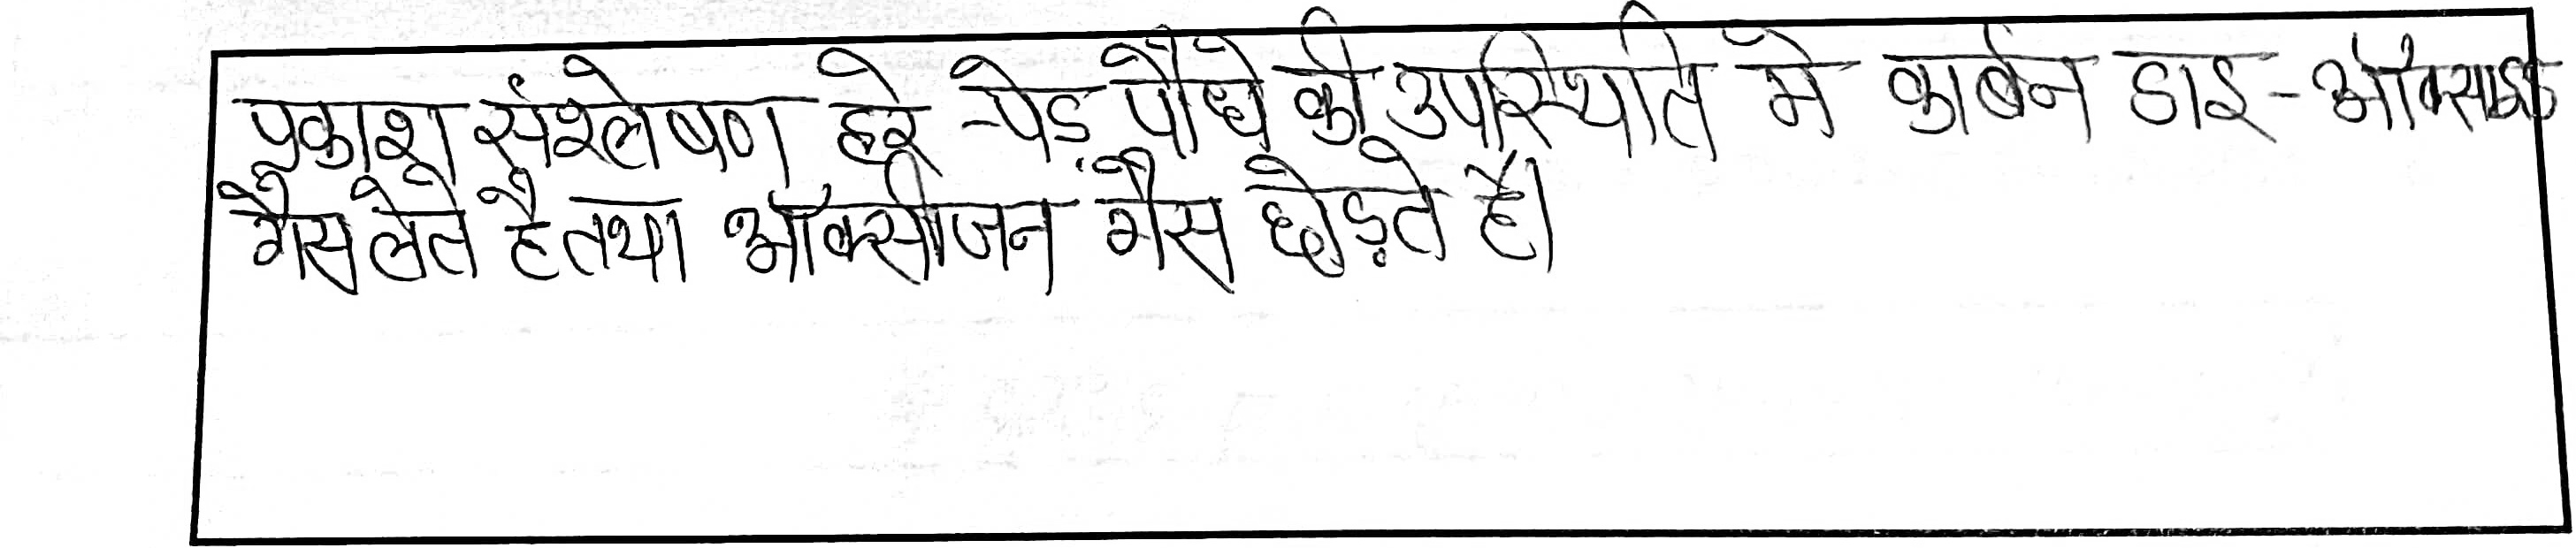 प्रकाश संश्लेषण हरे -पेड़ पौधे की उपस्थिति मे कार्बन डाइ-ऑक्साइड
गैस लेते है तथा ऑक्सीजन गैस छोड़ते है।